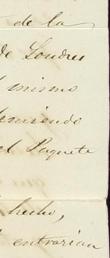 de la
de Londres
mismo
el Paquete
hecho,
entrarian